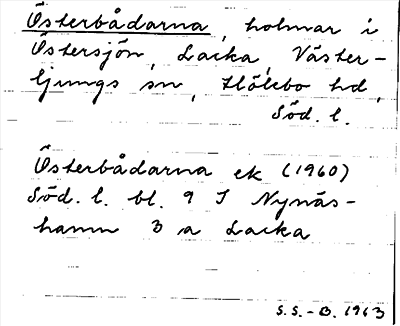 Österbådarna, holmar i
Östersjön, Lacka, Väster-
ljungs sn, Hölebo hd,
Söd. l.
Österbådarna ek (1960)
Söd. l. bl. 9 I Nynäs-
hamn 3 a Lacka
S.S.-B. 1963